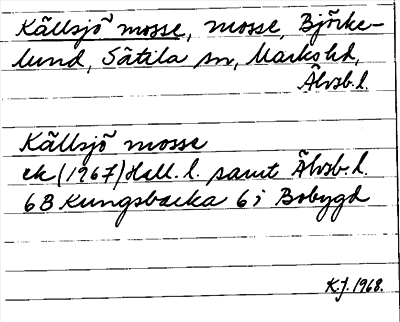 Källsjö mosse, mosse, Björke-
lund, Sätila sn, Marks hd,
Älvsb. l.
Källsjö mosse
ek (1967) Hall. l. samt Älvsb. l.
6B Kungsbacka 6i Bobygd
K.J. 1968.